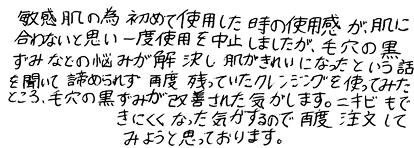 敏感肌の為 初めて使用した 時の使用感 が、肌に
合わないと思い 一度使用を中止しましたが、毛穴の黒
ずみなどの悩みが解 決し 肌がきれいになったという話
を聞いて 諦められず 再度 残っていたクレンジングを使ってみた
ところ、毛穴の黒ずみが改善された気がします。ニキビもで
きにくくなった気がするので 再度 注文して
みようと思っております。